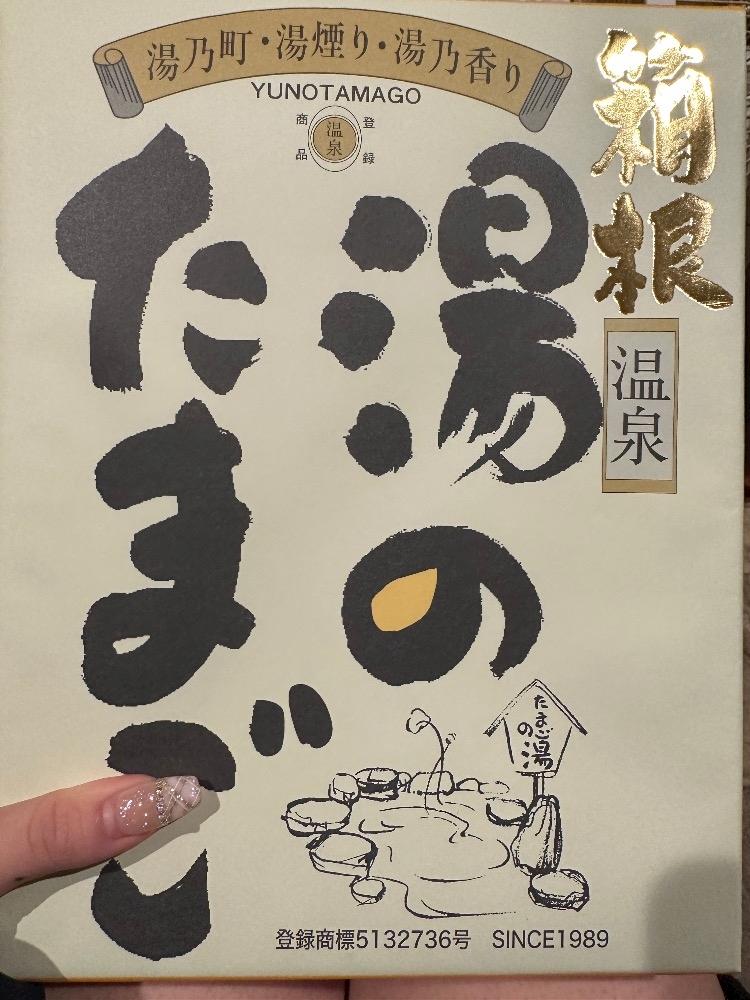 湯乃町・湯煙り・湯乃香り
YUNOTAMAGO
登録
商品
温泉
箱根
温泉
湯の
たまご
たまご
の湯
登録商標5132736号 SINCE1989